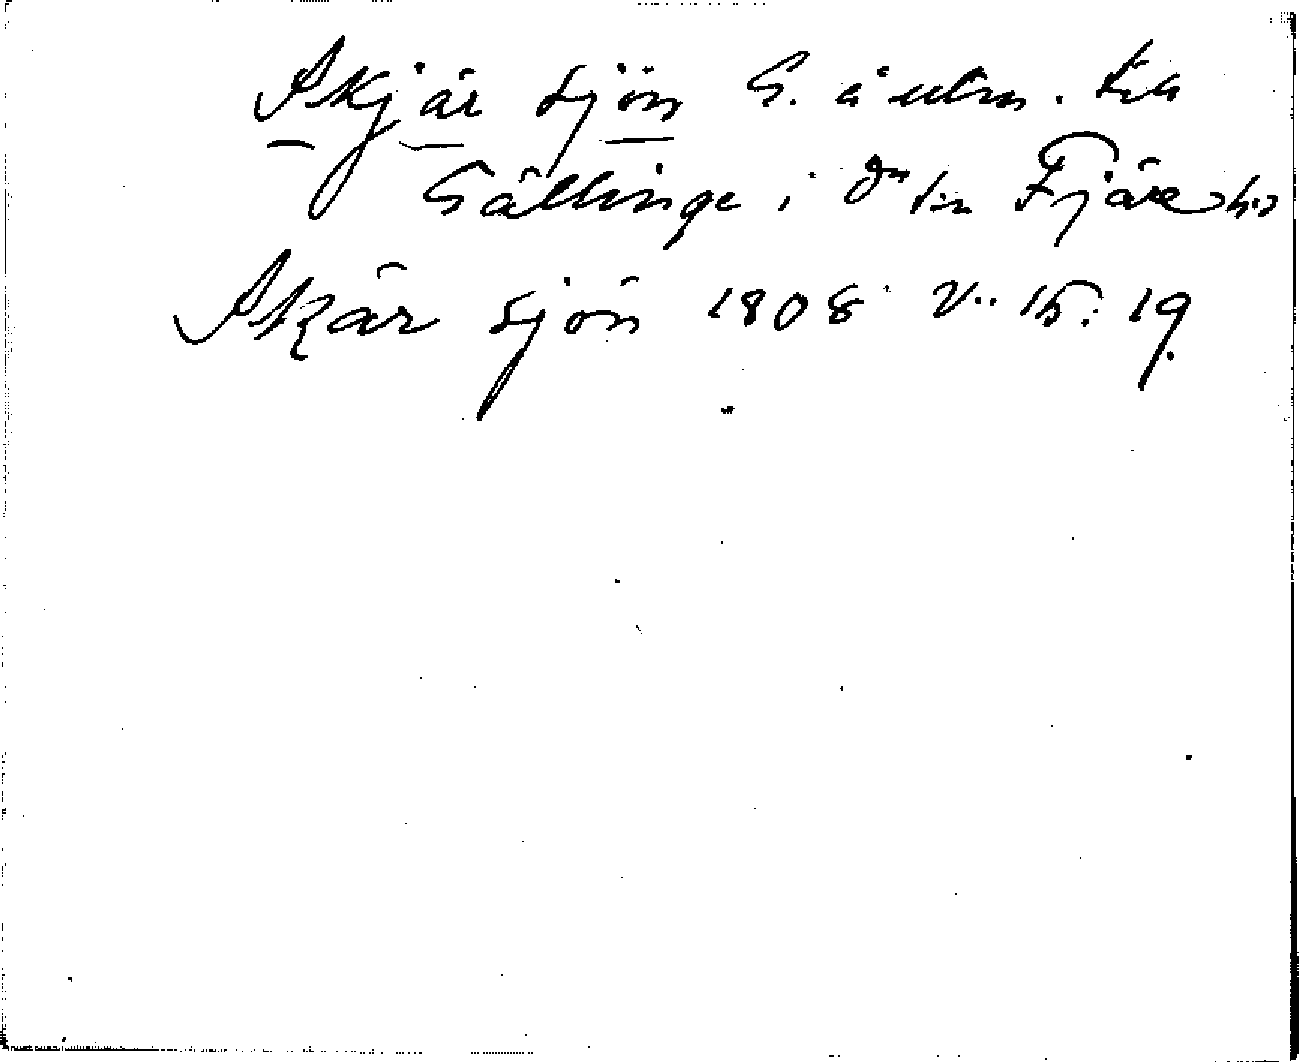 Skjär sjön G. å utm. till
Gällinge i dn sn Fjäre hd
Skär sjön 1808 V. 15: 19.